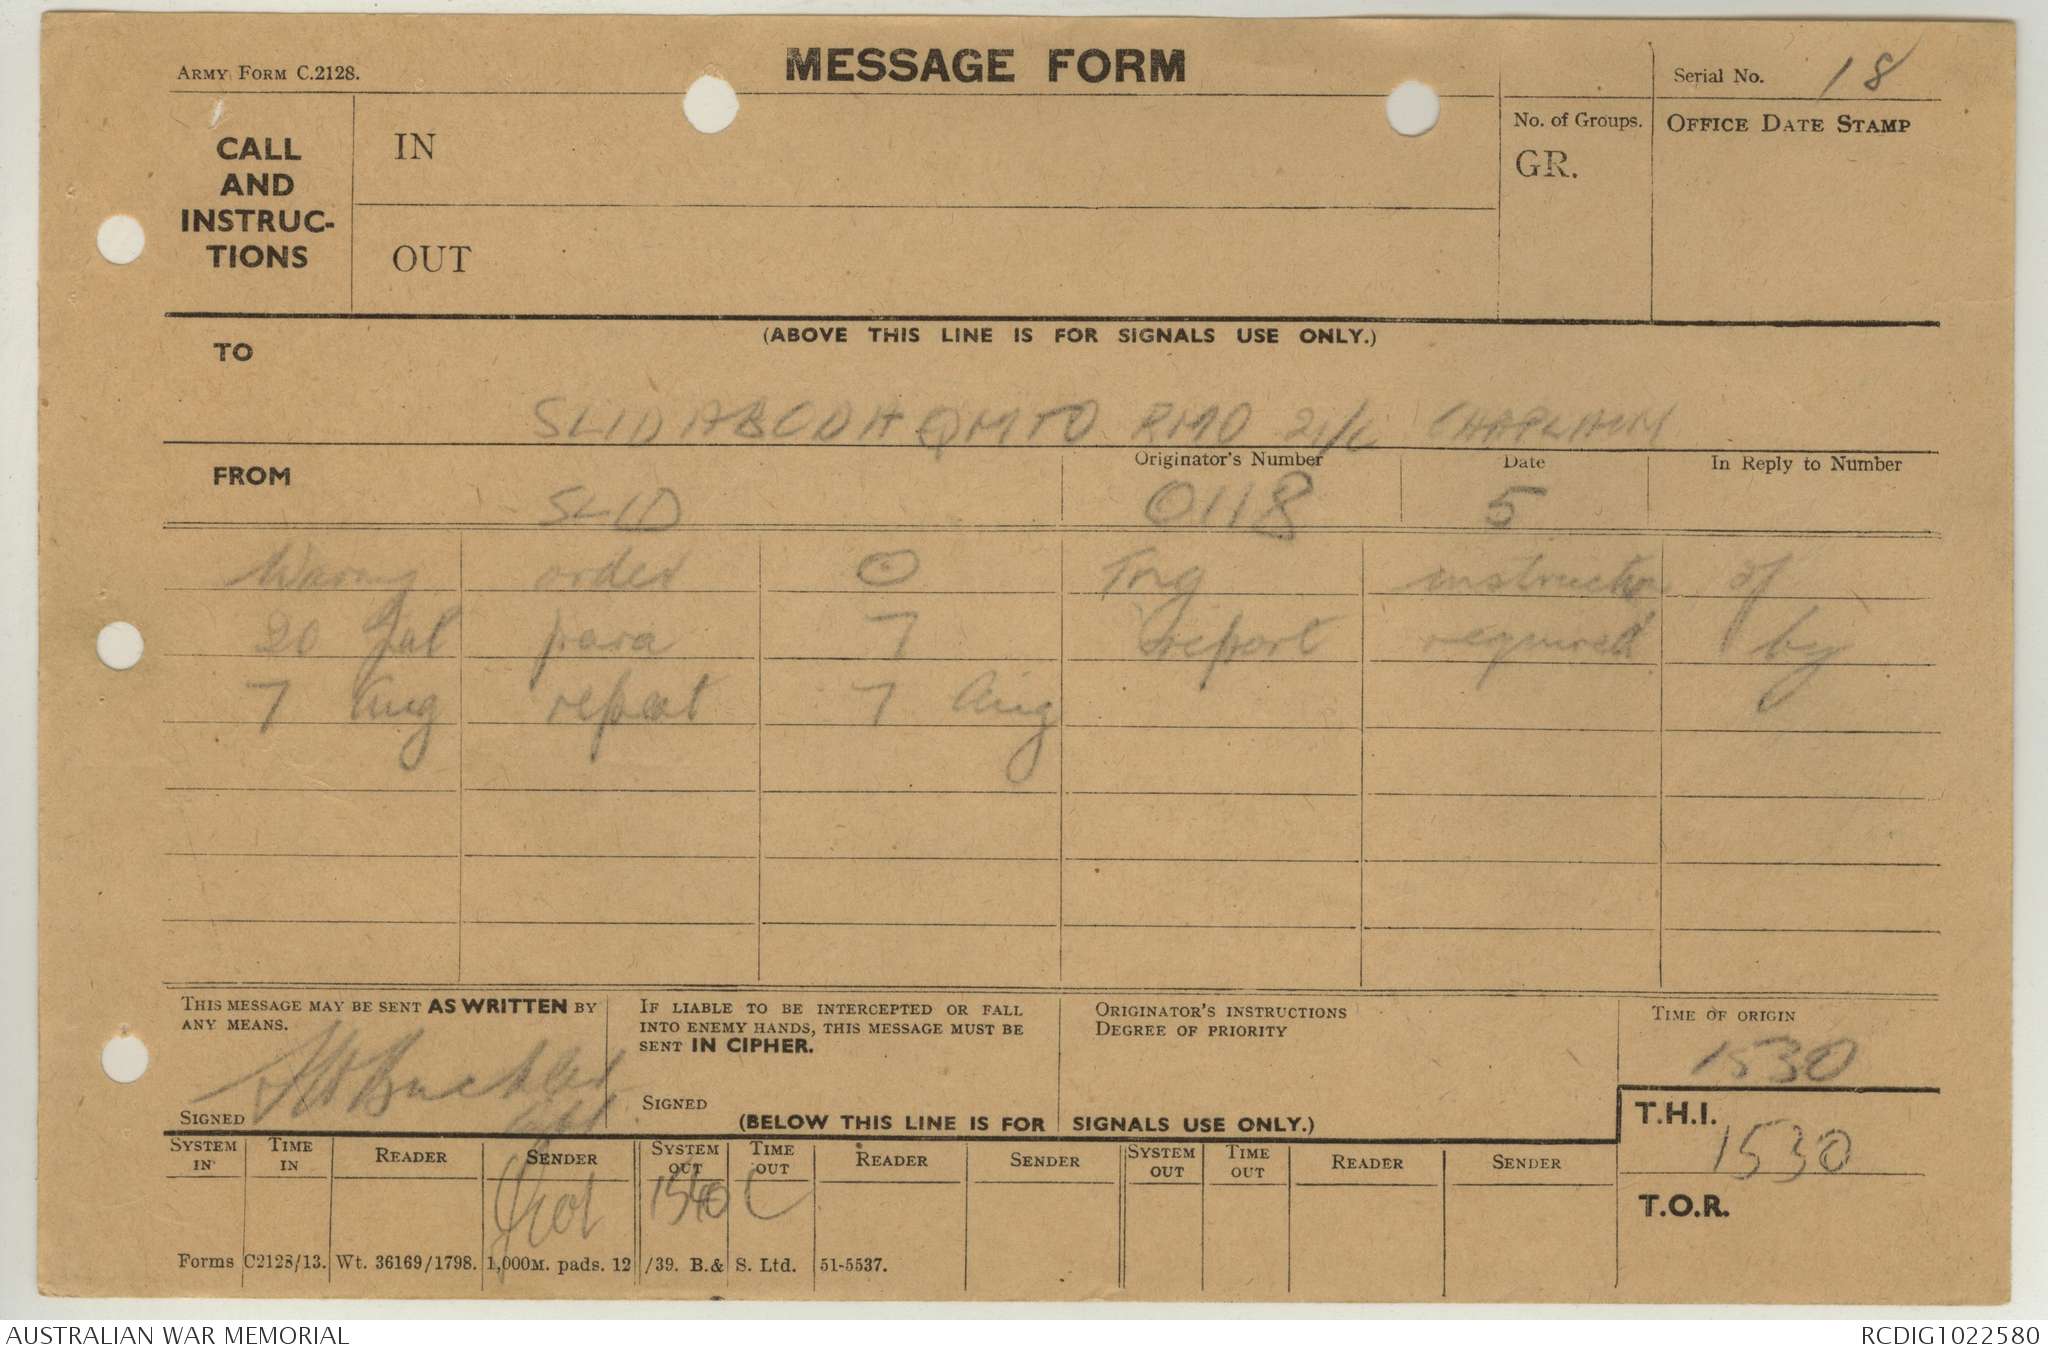 ARMY FORM C.2128.
MESSAGE FORM
Serial No. 18
CALL AND INSTRUC-TIONS
IN
OUT
No. of Groups.
GR.
OFFICE DATE STAMP
(ABOVE THIS LINE IS FOR SIGNALS USE ONLY.)
TO
SLID A B C D H QM TO RMO 2i/c CHAPLAIN
FROM SLID
Originator's Number 0118
Date 5
In Reply to Number
order O Trng of
20 Jul para 7 report required by
7 Aug repeat 7 Aug
THIS MESSAGE MAY BE SENT AS WRITTEN BY ANY MEANS.
SIGNED
IF LIABLE TO BE INTERCEPTED OR FALL INTO ENEMY HANDS, THIS MESSAGE MUST BE SENT IN CIPHER.
SIGNED
ORIGINATOR'S INSTRUCTIONS
DEGREE OF PRIORITY
TIME OF ORIGIN
1530
(BELOW THIS LINE IS FOR SIGNALS USE ONLY.)
T.H.I. 1530
T.O.R.
SYSTEM IN TIME IN READER SENDER SYSTEM OUT TIME OUT READER SENDER SYSTEM OUT TIME OUT READER SENDER
1540
Forms C2128/13. Wt. 36169/1798. 1,000M. pads. 12/39. B.& S. Ltd. 51-5537.
AUSTRALIAN WAR MEMORIAL
RCDIG1022580